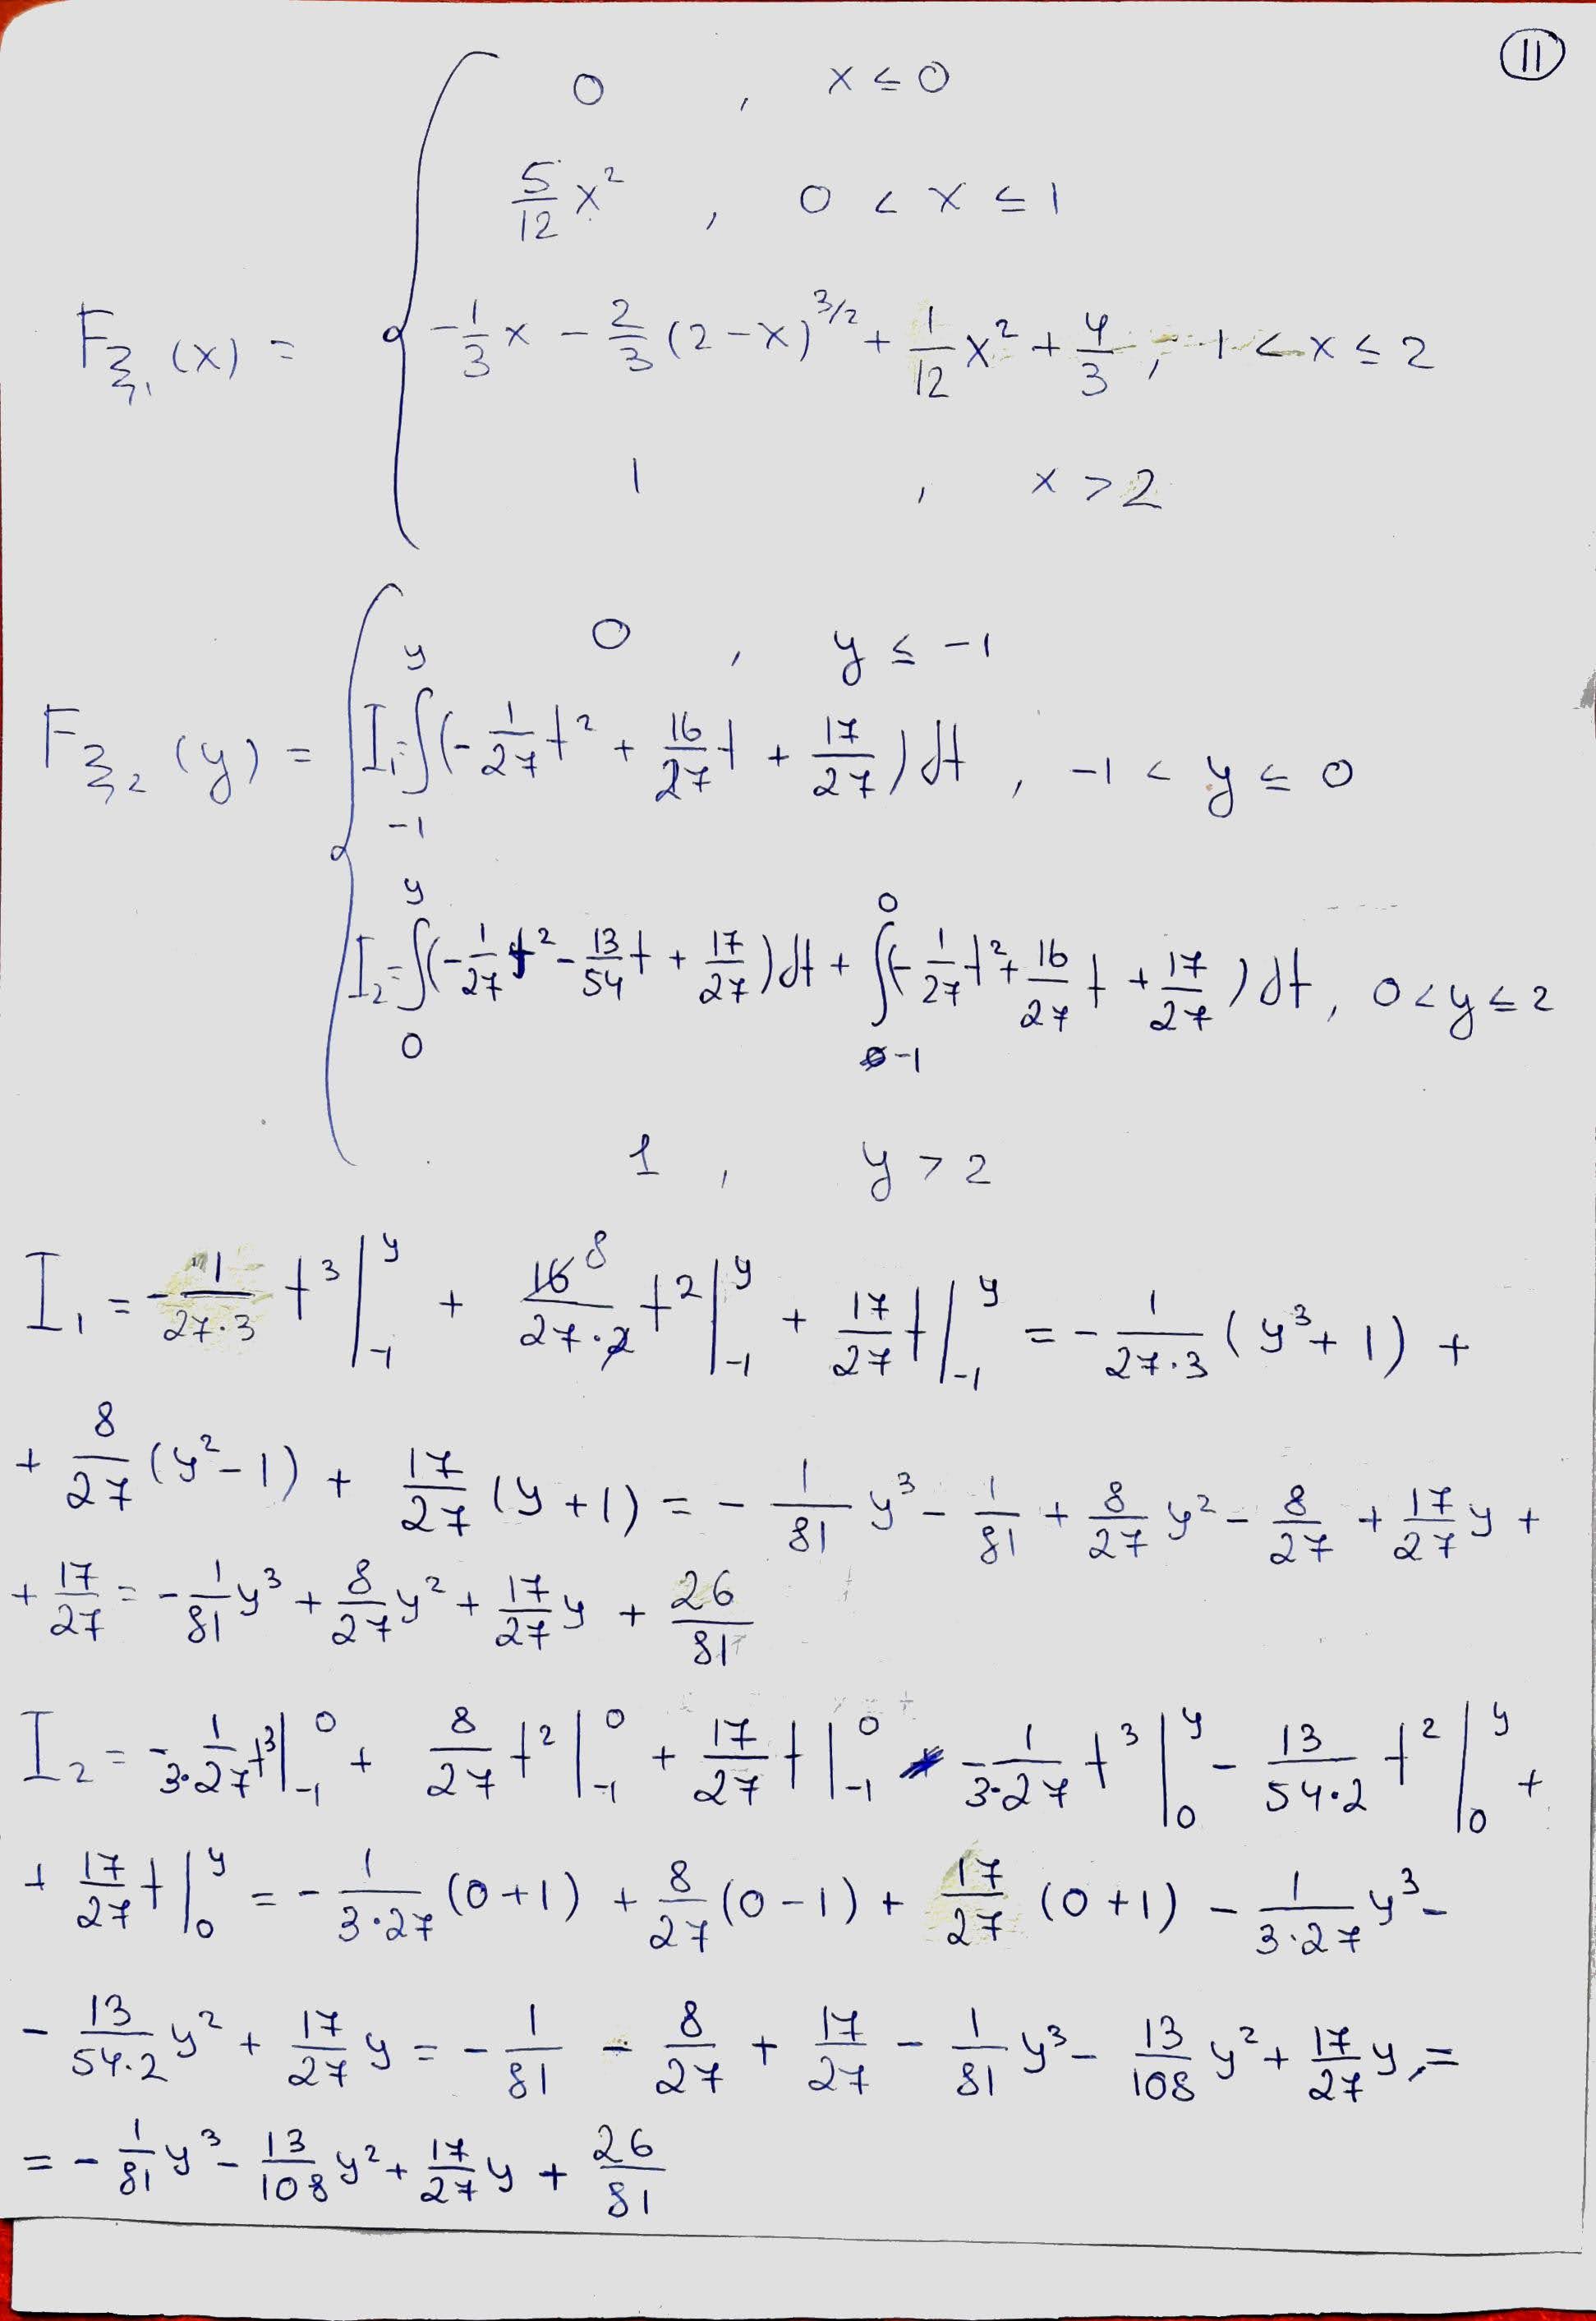 11
0 , x ≤ 0
5/12 x² , 0 < x ≤ 1
F_ξ₁(x) = { -1/3 x - 2/3 (2-x)^(3/2) + 1/12 x² + 4/3 , 1 < x ≤ 2
1 , x > 2
0 , y ≤ -1
F_ξ₂(y) = { I₁ = ∫_{-1}^{y} (-1/27 t² + 16/27 t + 17/27) dt , -1 < y ≤ 0
I₂ = ∫_{0}^{y} (-1/27 t² - 13/54 t + 17/27) dt + ∫_{-1}^{0} (-1/27 t² + 16/27 t + 17/27) dt , 0 < y ≤ 2
1 , y > 2
I₁ = -1/(27·3) t³ |_{-1}^{y} + 16 8/(27·2) t² |_{-1}^{y} + 17/27 t |_{-1}^{y} = -1/(27·3) (y³ + 1) +
+ 8/27 (y² - 1) + 17/27 (y + 1) = -1/81 y³ - 1/81 + 8/27 y² - 8/27 + 17/27 y +
+ 17/27 = -1/81 y³ + 8/27 y² + 17/27 y + 26/81
I₂ = -1/(3·27) t³ |_{-1}^{0} + 8/27 t² |_{-1}^{0} + 17/27 t |_{-1}^{0} - 1/(3·27) t³ |_{0}^{y} - 13/(54·2) t² |_{0}^{y} +
+ 17/27 t |_{0}^{y} = -1/(3·27) (0+1) + 8/27 (0-1) + 17/27 (0+1) - 1/(3·27) y³ -
- 13/(54·2) y² + 17/27 y = -1/81 - 8/27 + 17/27 - 1/81 y³ - 13/108 y² + 17/27 y =
= -1/81 y³ - 13/108 y² + 17/27 y + 26/81